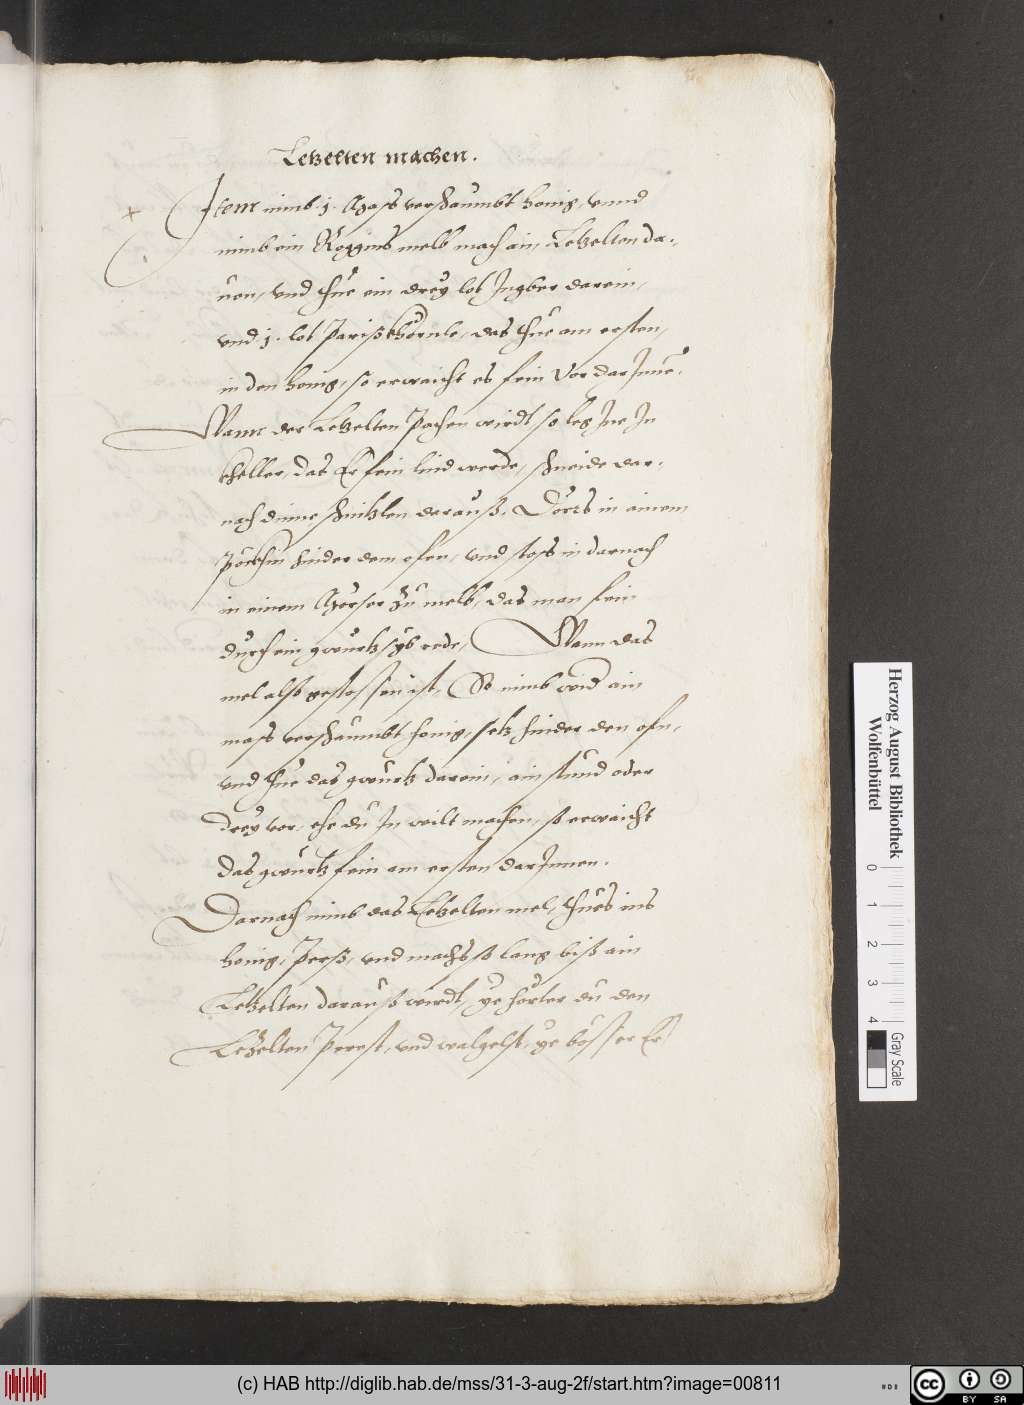 Letzelten machen.
Item nimb .j. Mass verschaumbt honig, vnnd
nimb ein Roggins melb mach ain Letzelten da-
uon, vnd thue ein drey lot Ingber darein,
vnd .j. lot Parißkhörnle, das thue am ersten,
in den honig, so erwaicht es fein vor darInne.
Wann der Letzelten Pachen wirdt so leg Jne In
kheller, das Er fein lind werde, schneide dar-
nach dinne schnitzlen darauß. Dörrs in ainem
hinder dem ofen, vnd stoss in darnach
in einem Mörser Zu melb, das man fein
durch ein gwürtz syb rede, Wann das
mel also gestossen ist, So nimb wid ain
mass verschaumbt honig, setz hinder den ofn,
vnd thue das gwürtz darein, ain stund oder
drey vor, ehe du In wilt machen, so erwaicht
das gwürtz fein am ersten darJnnen.
Darnach nimb das Letzelten mel, thues ins
honig, Perß, vnd machs so lang biß ain
Letzelten darauß wirdt, ye herter du den
Letzelten Perest, vnd walgelst, ye besser Er
Herzog August Bibliothek
Wolfenbüttel
0 1 2 3 4
Gray Scale
(c) HAB http://diglib.hab.de/mss/31-3-aug-2f/start.htm?image=00811
cc BY SA